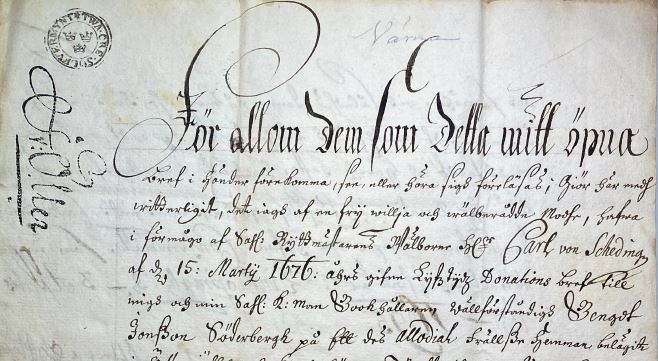 Wärna
För allom dem som detta mitt öpna
bref i händer förekomma, see, eller höra sigh föreläsas; Giör här medh
witterligit, det iagh af en fry willja och wälberådde Modhe, hafwa
i förmågo af Sahl: Ryttmästarens Wälborne H:r Carl von Schedings
af d. 15: Martij 1676: åhrs gifne Donations bref till
migh och min Sahl: K: man Bookhållaren Wällförståndigh Bengdt
Jonsson Söderbergh på Ett des Allodial frällsse Hemman belägit